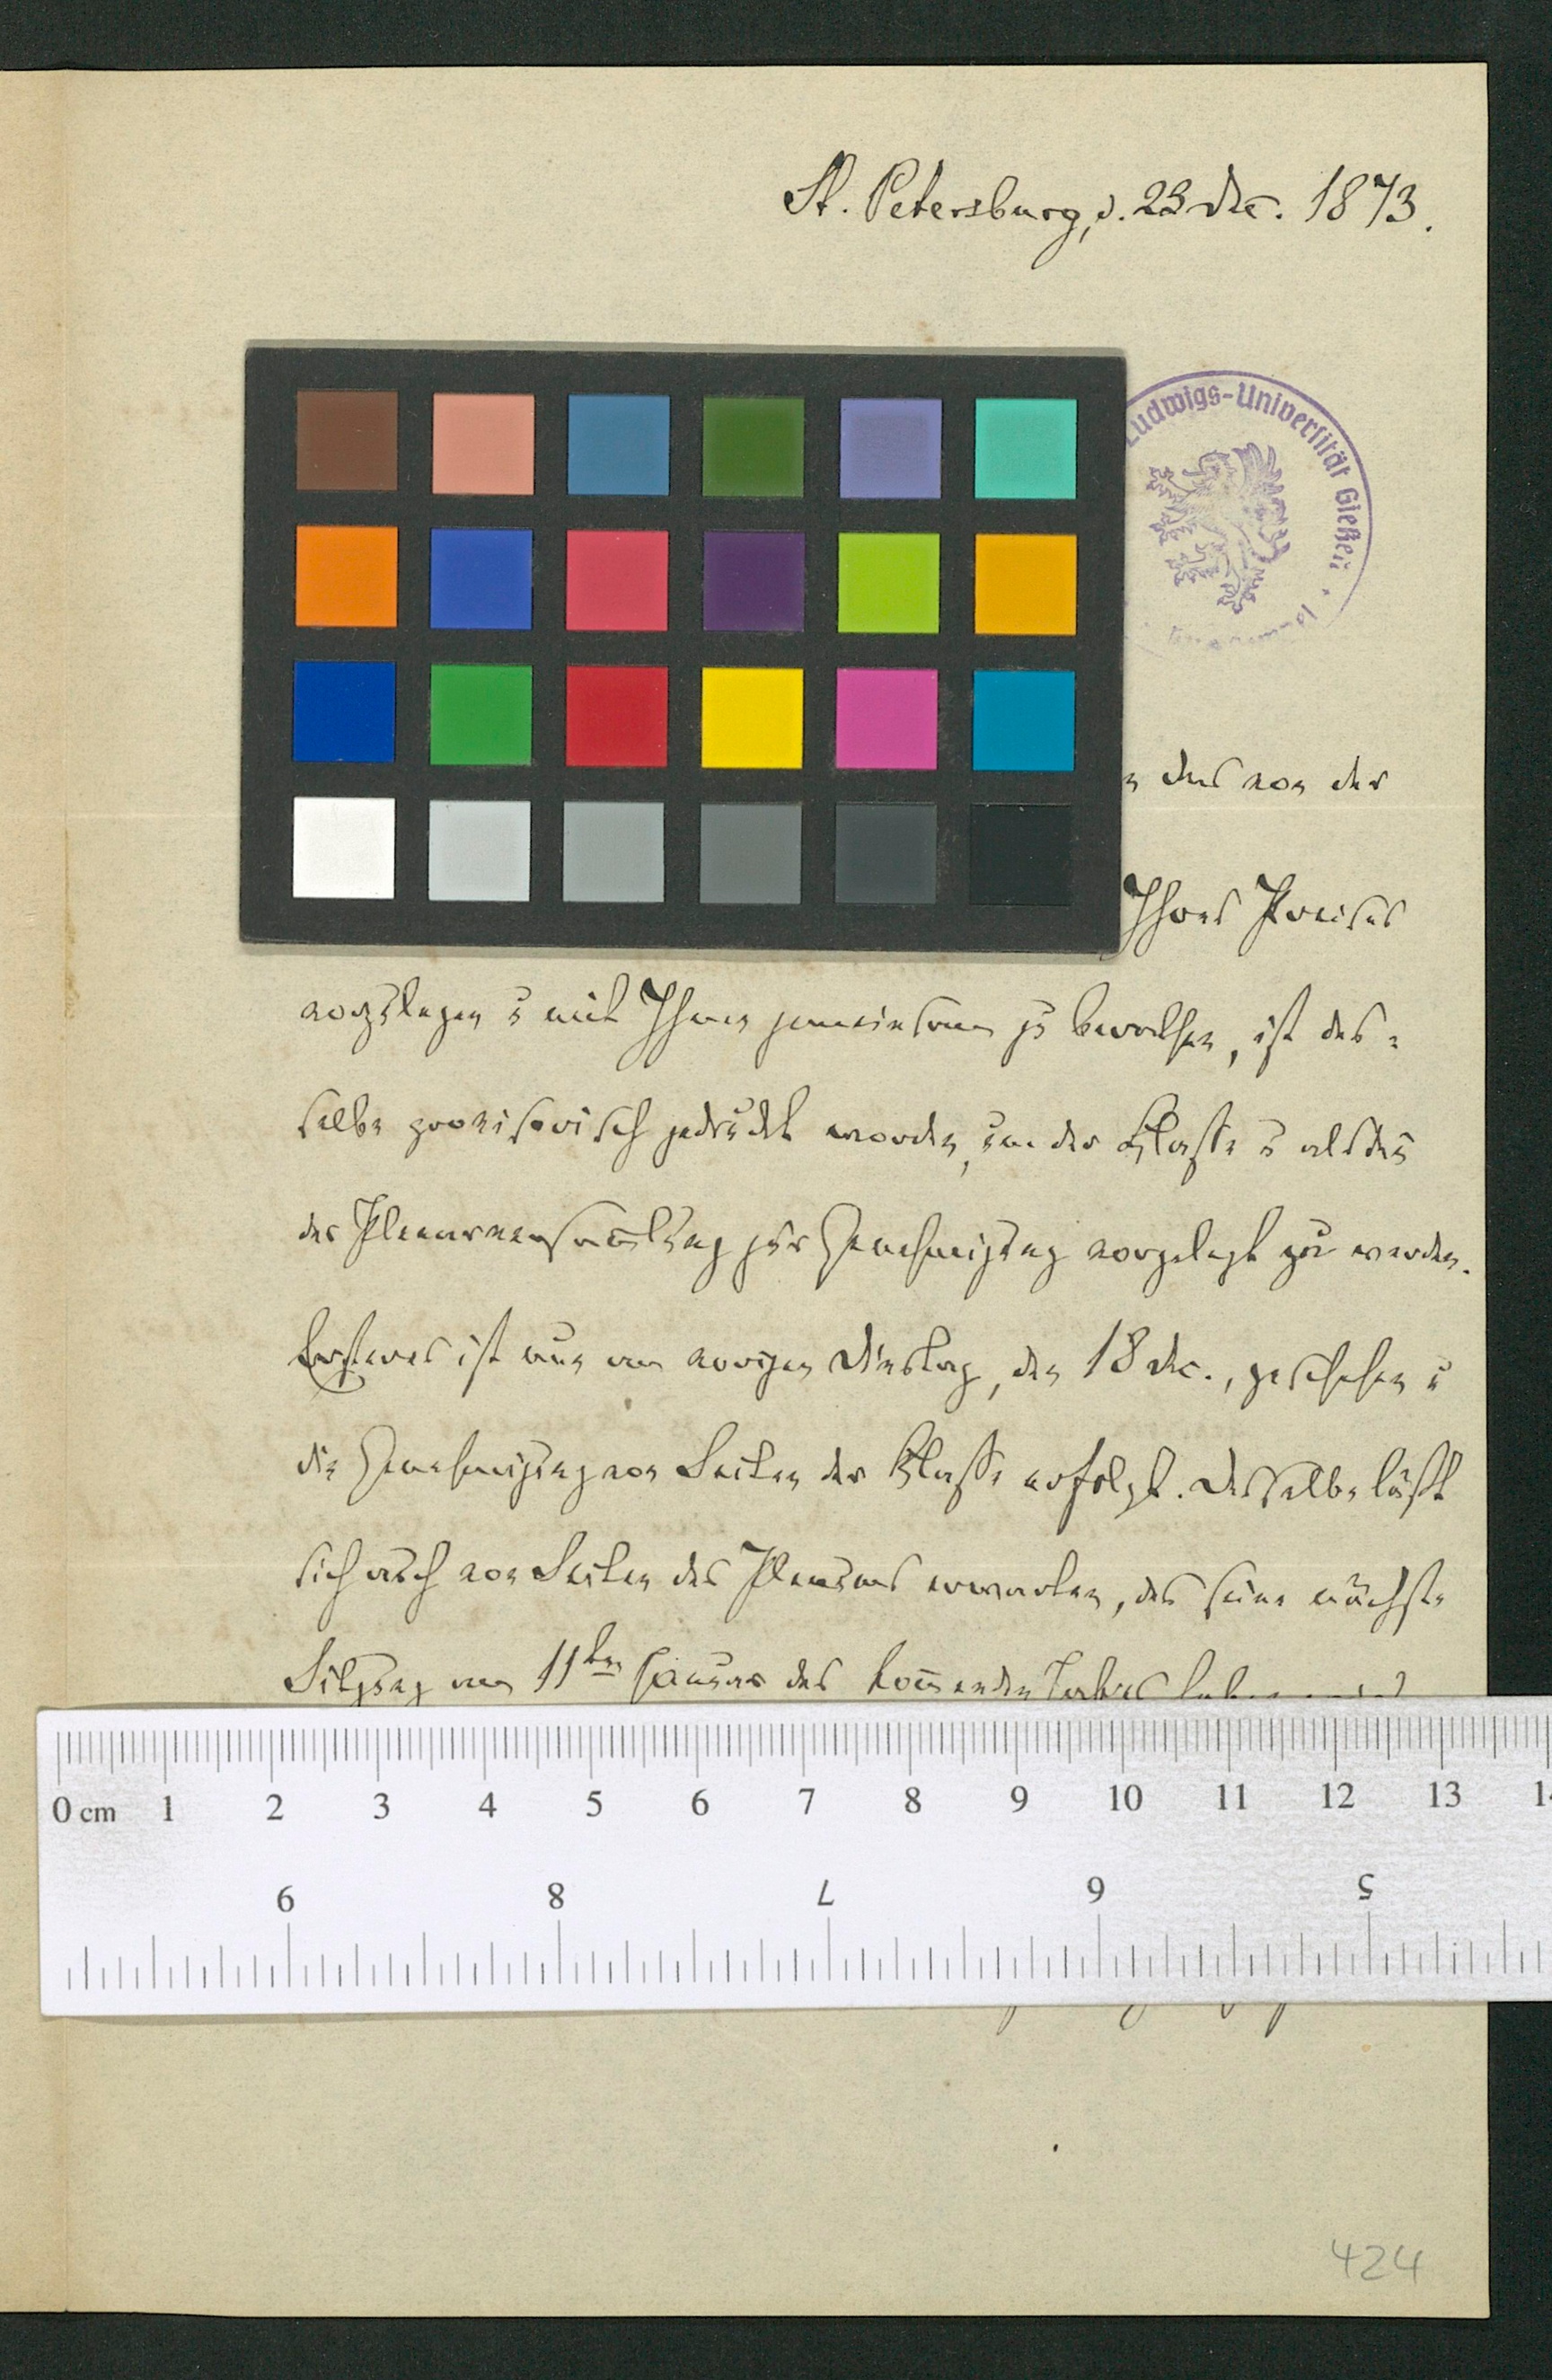 St. Petersburg, d. 23 Dec. 1873.
Ludwigs-Universität Gießen
das von der
Ihres Kreises
vorzulegen u mit Ihnen gemeinsam zu berathen, ist das-
selbe provisorisch gedruckt worden, um der Klasse u alsdan
der Plenarversam̄lung zur Genehmigung vorgelegt zu werden.
Ersteres ist nun am vorigen Dinstag, den 18 Dec., geschehen u
die Genehmigung von Seiten der Klasse erfolgt. Dasselbe läßt
sich auch von Seiten des Plenums erwarten, das seine nächste
Sitzung am 11ten Januar des kom̄enden Jahres haben wird
0 cm 1 2 3 4 5 6 7 8 9 10 11 12 13
9 8 7 6 5
424